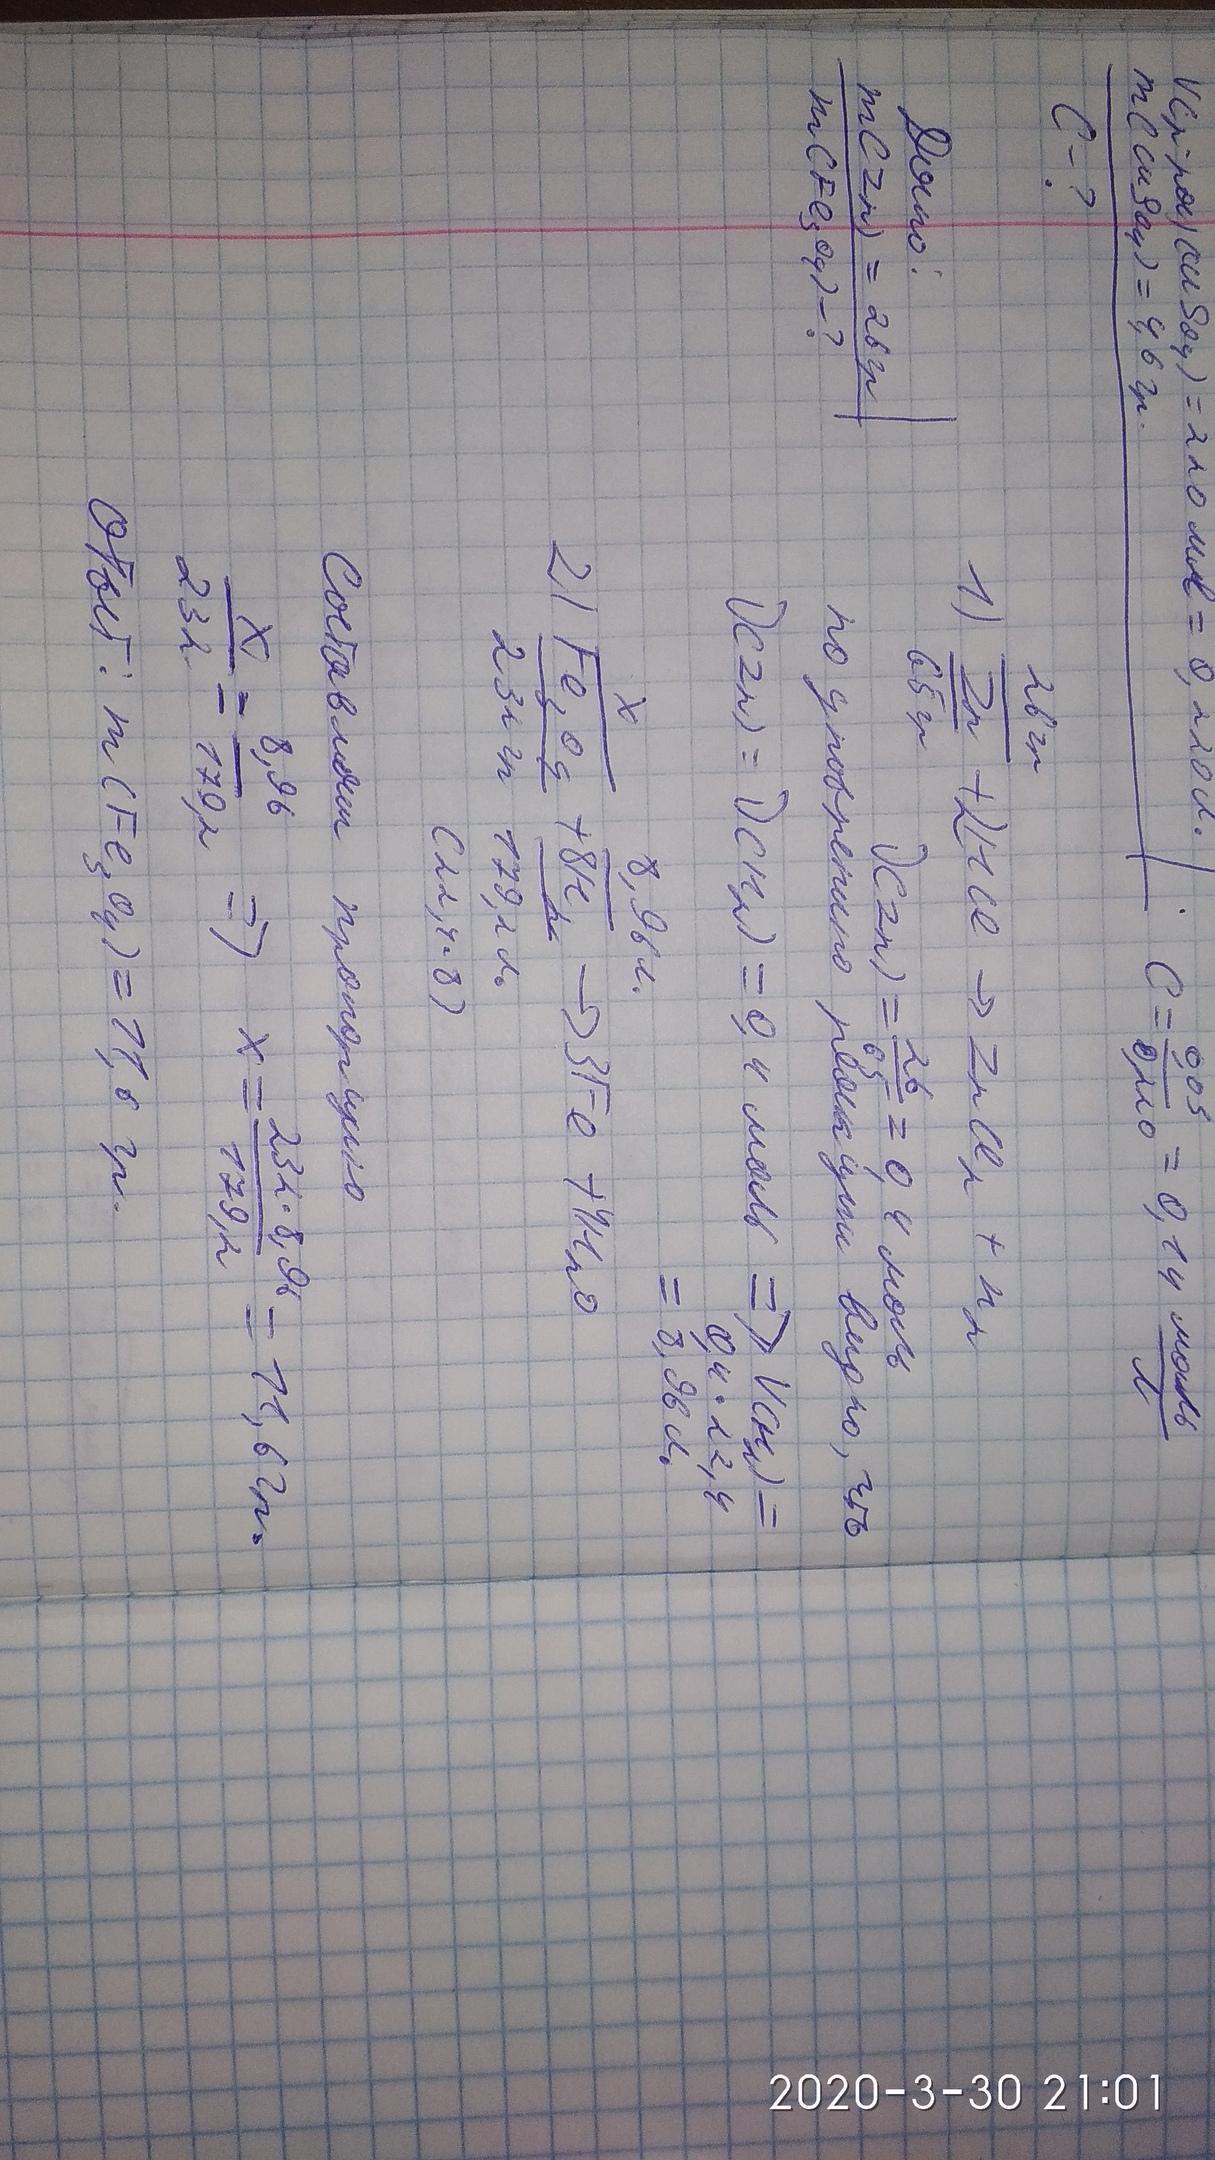 V(р-ра)(CuSO4) = 220 мл = 0,220 л.
m(CuSO4) = 4,6 гр.
С - ?
C = 0,03 / 0,220 = 0,14 моль/л
Дано:
m(Zn) = 26 гр
m(Fe3O4) - ?
26 гр
1) Zn + 2HCl → ZnCl2 + H2
65 гр
ν(Zn) = 26/65 = 0,4 моль
по уровнению реакции видно, что
ν(Zn) = ν(H2) = 0,4 моль ⇒ V(H2) =
0,4 · 22,4
= 8,96 л.
x 8,96 л.
2) Fe3O4 + 8H2 → 3Fe + 4H2O
232 гр 179,2 л.
(22,4·8)
Составляем пропорцию
x/232 = 8,96/179,2 ⇒ x = 232·8,96/179,2 = 11,6 гр.
Ответ: m(Fe3O4) = 11,6 гр.
2020-3-30 21:01